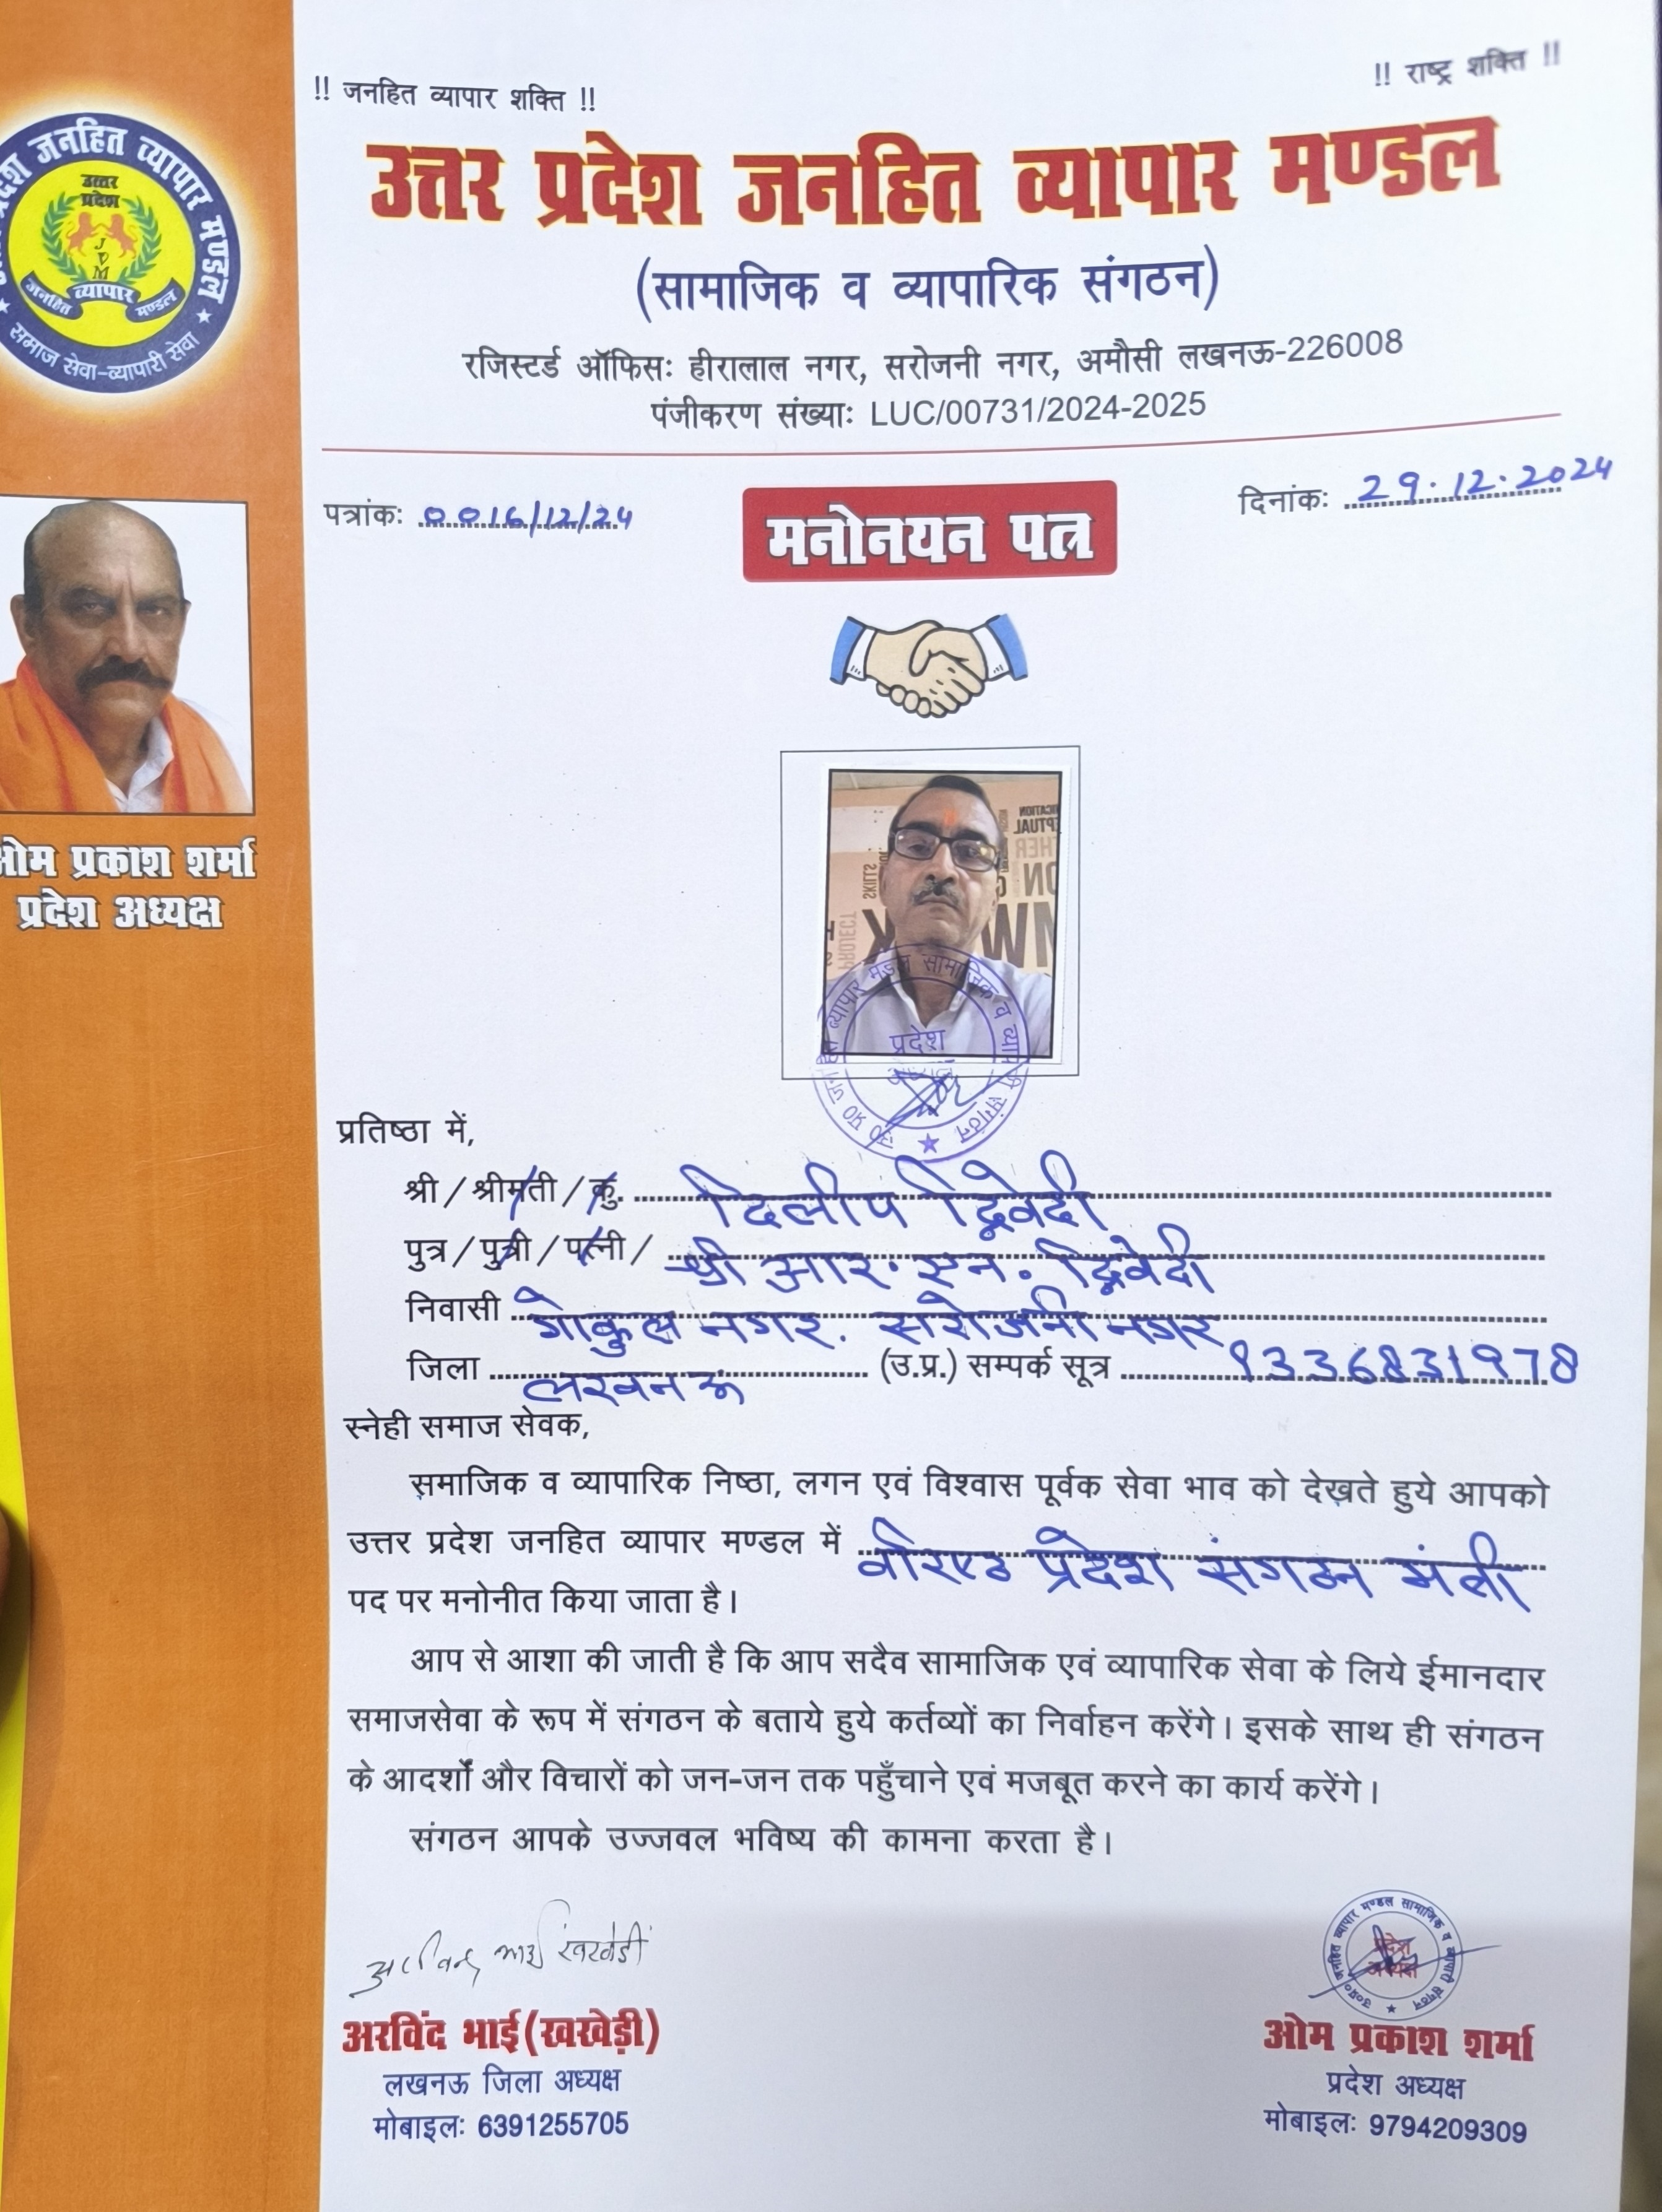 !! जनहित व्यापार शक्ति !!
!! राष्ट्र शक्ति !!
उत्तर प्रदेश जनहित व्यापार मण्डल
(सामाजिक व व्यापारिक संगठन)
रजिस्टर्ड ऑफिसः हीरालाल नगर, सरोजनी नगर, अमौसी लखनऊ-226008
पंजीकरण संख्याः LUC/00731/2024-2025
जनहित व्यापार मण्डल
उत्तर
प्रदेश
J
V
M
जनहित व्यापार मण्डल
समाज सेवा-व्यापारी सेवा
पत्रांकः 0016/12/24
दिनांकः 29.12.2024
मनोनयन पत्र
ओम प्रकाश शर्मा
प्रदेश अध्यक्ष
उ0प्र0 जनहित व्यापार मंडल सामाजिक व व्यापारी संगठन
प्रदेश
प्रतिष्ठा में,
श्री/श्रीमती/कु. दिलीप द्विवेदी
पुत्र/पुत्री/पत्नी/ श्री आर. एन. द्विवेदी
निवासी गोकुल नगर. सरोजनी नगर
जिला लखनऊ (उ.प्र.) सम्पर्क सूत्र 9336831978
स्नेही समाज सेवक,
समाजिक व व्यापारिक निष्ठा, लगन एवं विश्वास पूर्वक सेवा भाव को देखते हुये आपको
उत्तर प्रदेश जनहित व्यापार मण्डल में वरिष्ठ प्रदेश संगठन मंत्री
पद पर मनोनीत किया जाता है।
आप से आशा की जाती है कि आप सदैव सामाजिक एवं व्यापारिक सेवा के लिये ईमानदार
समाजसेवा के रूप में संगठन के बताये हुये कर्तव्यों का निर्वाहन करेंगे। इसके साथ ही संगठन
के आदर्शों और विचारों को जन-जन तक पहुँचाने एवं मजबूत करने का कार्य करेंगे।
संगठन आपके उज्जवल भविष्य की कामना करता है।
अरविन्द भाई खखेड़ी
अरविंद भाई(खखेड़ी)
लखनऊ जिला अध्यक्ष
मोबाइलः 6391255705
उ0प्र0 जनहित व्यापार मण्डल सामाजिक व व्यापारी संगठन
प्रदेश
अध्यक्ष
ओम प्रकाश शर्मा
प्रदेश अध्यक्ष
मोबाइलः 9794209309